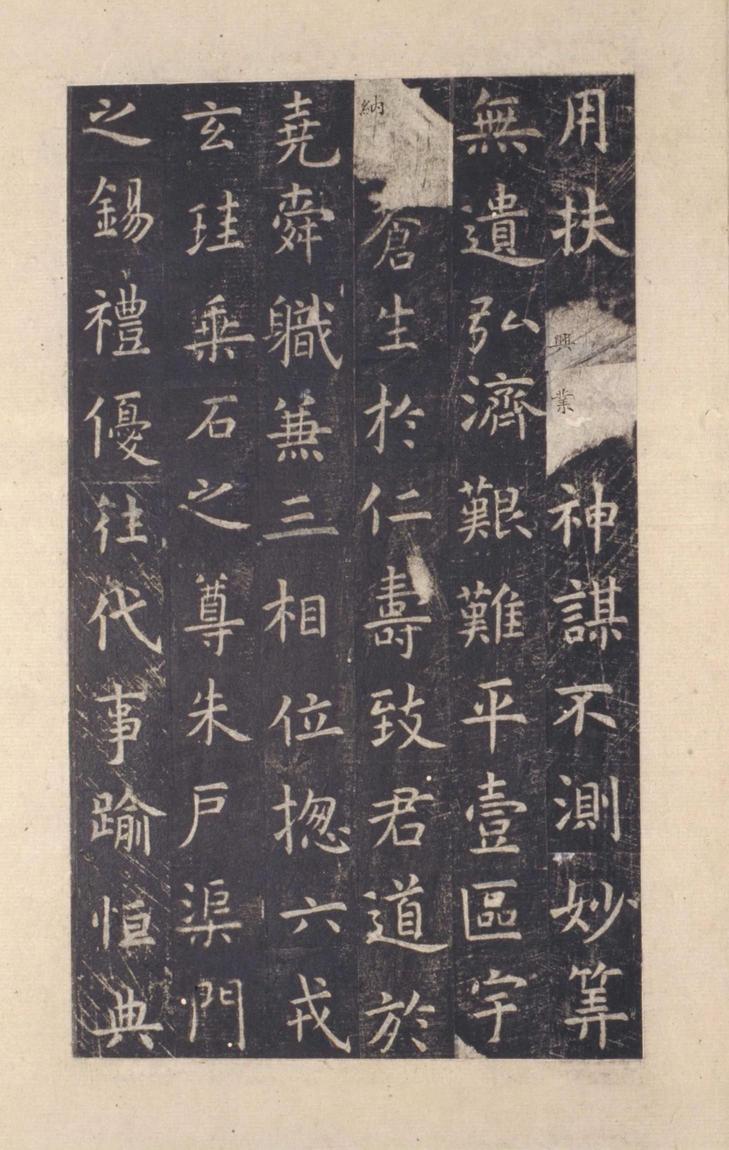 用扶興業神謀不測妙筭
無遺弘濟艱難平壹區宇
納蒼生於仁壽致君道於
堯舜職兼三相位揔六戎
玄珪乗石之尊朱戶渠門
之錫禮優往代事踰恒典